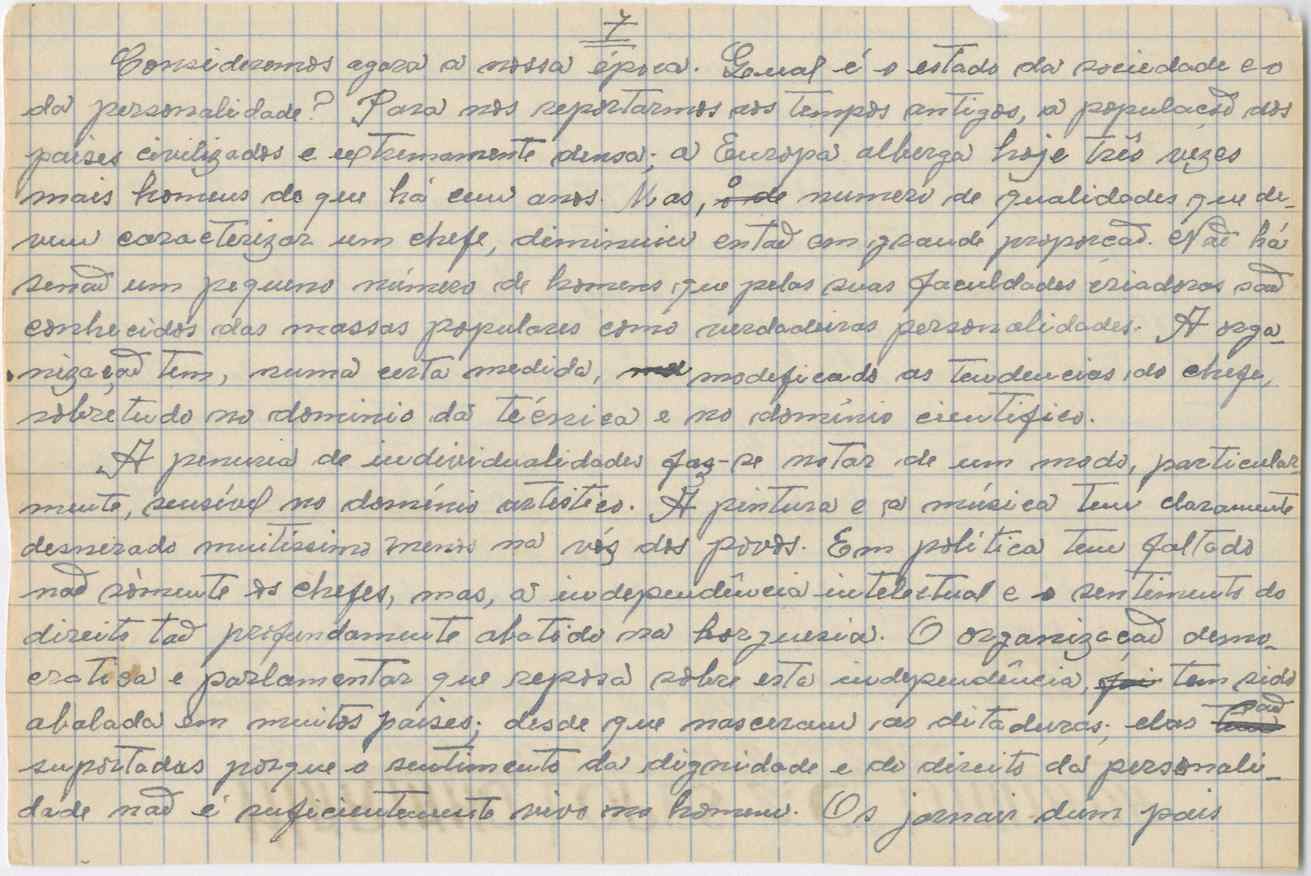 7
Consideremos agora a nossa época. Qual é o estado da sociedade e o
da personalidade? Para nos reportarmos aos tempos antigos, a população dos
paises civilizados e extremamente densa; a Europa alberga hoje três vezes
mais homens do que há cem anos. Mas, o de numero de qualidades que de-
vem caracterizar um chefe, diminuiu então em grande proporção. Não há
senão um pequeno número de homens que pelas suas faculdades criadoras são
conhecidos das massas populares como verdadeiras personalidades. A orga-
nização tem, numa certa medida, modeficado as tendencias do chefe,
sobretudo no dominio da técnica e no domínio cientifico.
A penuria de individualidades faz-se notar de um modo, particular
mente, sensível no domínio artistico. A pintura e a música tem claramente
desnerado muitissimo menos na vóz dos povos. Em política tem faltado
não sòmente os chefes, mas, a independência intelectual e o sentimento do
direito tão profundamente abatido na borguesia. O organização demo-
cratica e parlamentar que reposa sôbre esta independência, foi tem sido
abalada em muitos paises; desde que nasceram as ditaduras; elas são
suportadas porque o sentimento da dignidade e do direito da personali-
dade não é suficientemente vivo no homem. Os jornais dum pais